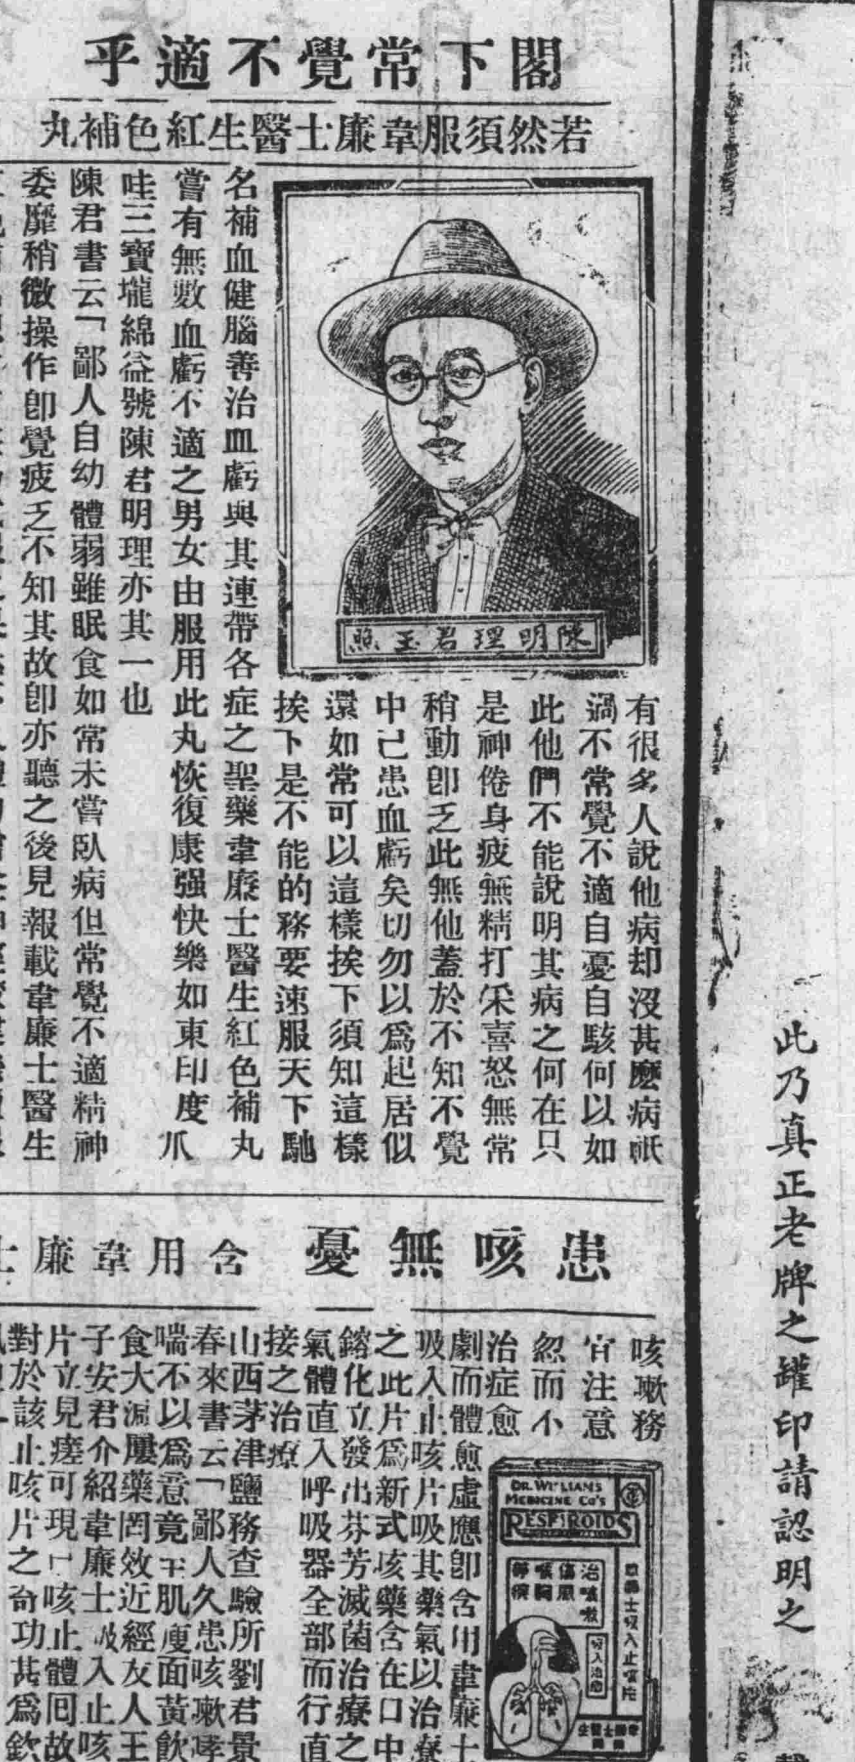 閣下常覺不適乎
若然須服韋廉士醫生紅色補丸
陳明理君玉照
有很多人說他病却沒甚麼病祇
過不常覺不適自憂自駭何以如
此他們不能說明其病之何在只
是神倦身疲無精打采喜怒無常
稍動卽乏此無他蓋於不知不覺
中已患血虧矣切勿以爲起居似
還如常可以這樣挨下須知這樣
挨下是不能的務要速服天下馳
名補血健腦善治血虧與其連帶各症之聖藥韋廉士醫生紅色補丸
嘗有無數血虧不適之男女由服用此丸恢復康强快樂如東印度爪
哇三寶壠綿益號陳君明理亦其一也
陳君書云「鄙人自幼體弱雖眠食如常未嘗臥病但常覺不適精神
委靡稍微操作卽覺疲乏不知其故卽亦聽之後見報載韋廉士醫生
患咳無憂
含用韋廉士
咳嗽務
宜注意
忽而不
治症愈
劇而體愈虛應卽含用韋廉士
吸入止咳片吸其藥氣以治療
之此片爲新式咳藥含在口中
鎔化立發出芬芳滅菌治療之
氣體直入呼吸器全部而行直
接之治療
山西茅津鹽務查驗所劉君景
春來書云「鄙人久患咳嗽哮
喘不以爲意竟至肌瘦面黃飲
食大減屢藥罔效近經友人王
子安君介紹韋廉士吸入止咳
片立見瘥可現咳止體回故
對於該止咳片之奇功甚爲欽
DR. WILLIAMS
MEDICINE Co's
RESPIROIDS
韋廉士吸入止咳片
治咳嗽
傷風
喉痛
吸入治療
此乃真正老牌之罐印請認明之